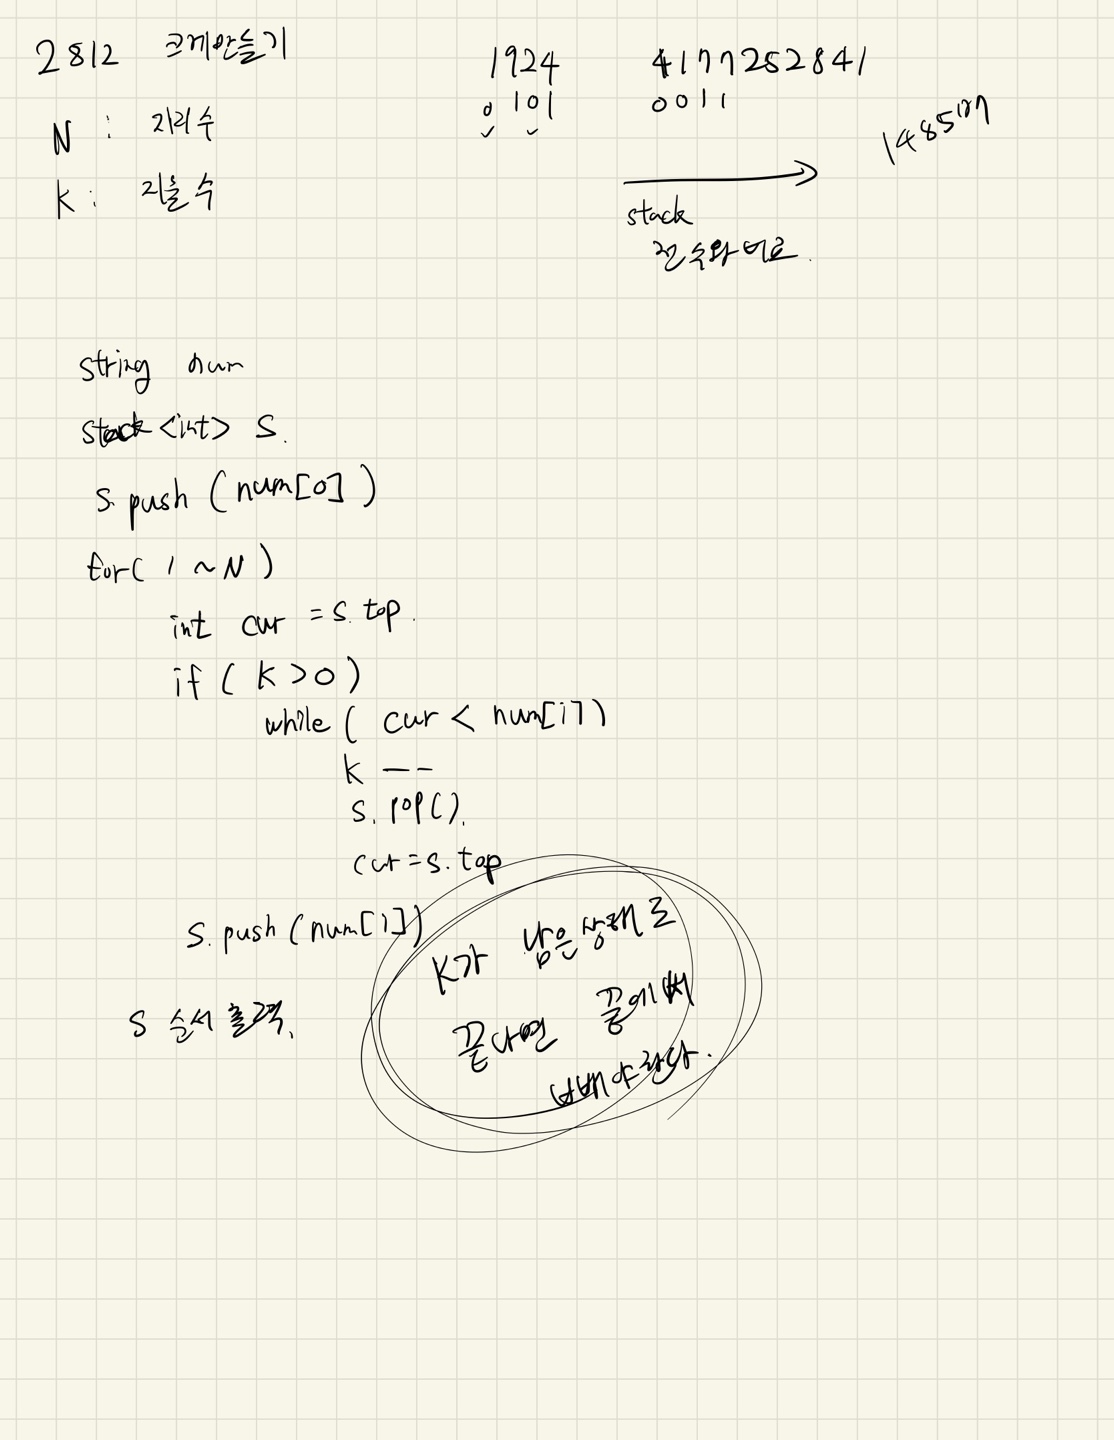 2812 크게만들기
N : 자리수
K : 지울 수
1924
0 1 0 1
4177252841
0 0 1 1
stack
전 수와 비교.
string num
stack<int> s.
s.push (num[0])
for( 1 ~ N )
int cur = s.top.
if ( K > 0 )
while ( cur < num[i])
K --
s. pop().
cur = s.top
s.push (num[i])
s 순서 출력.
K가 남은상태로
끝나면 끝에서
빼야한다.